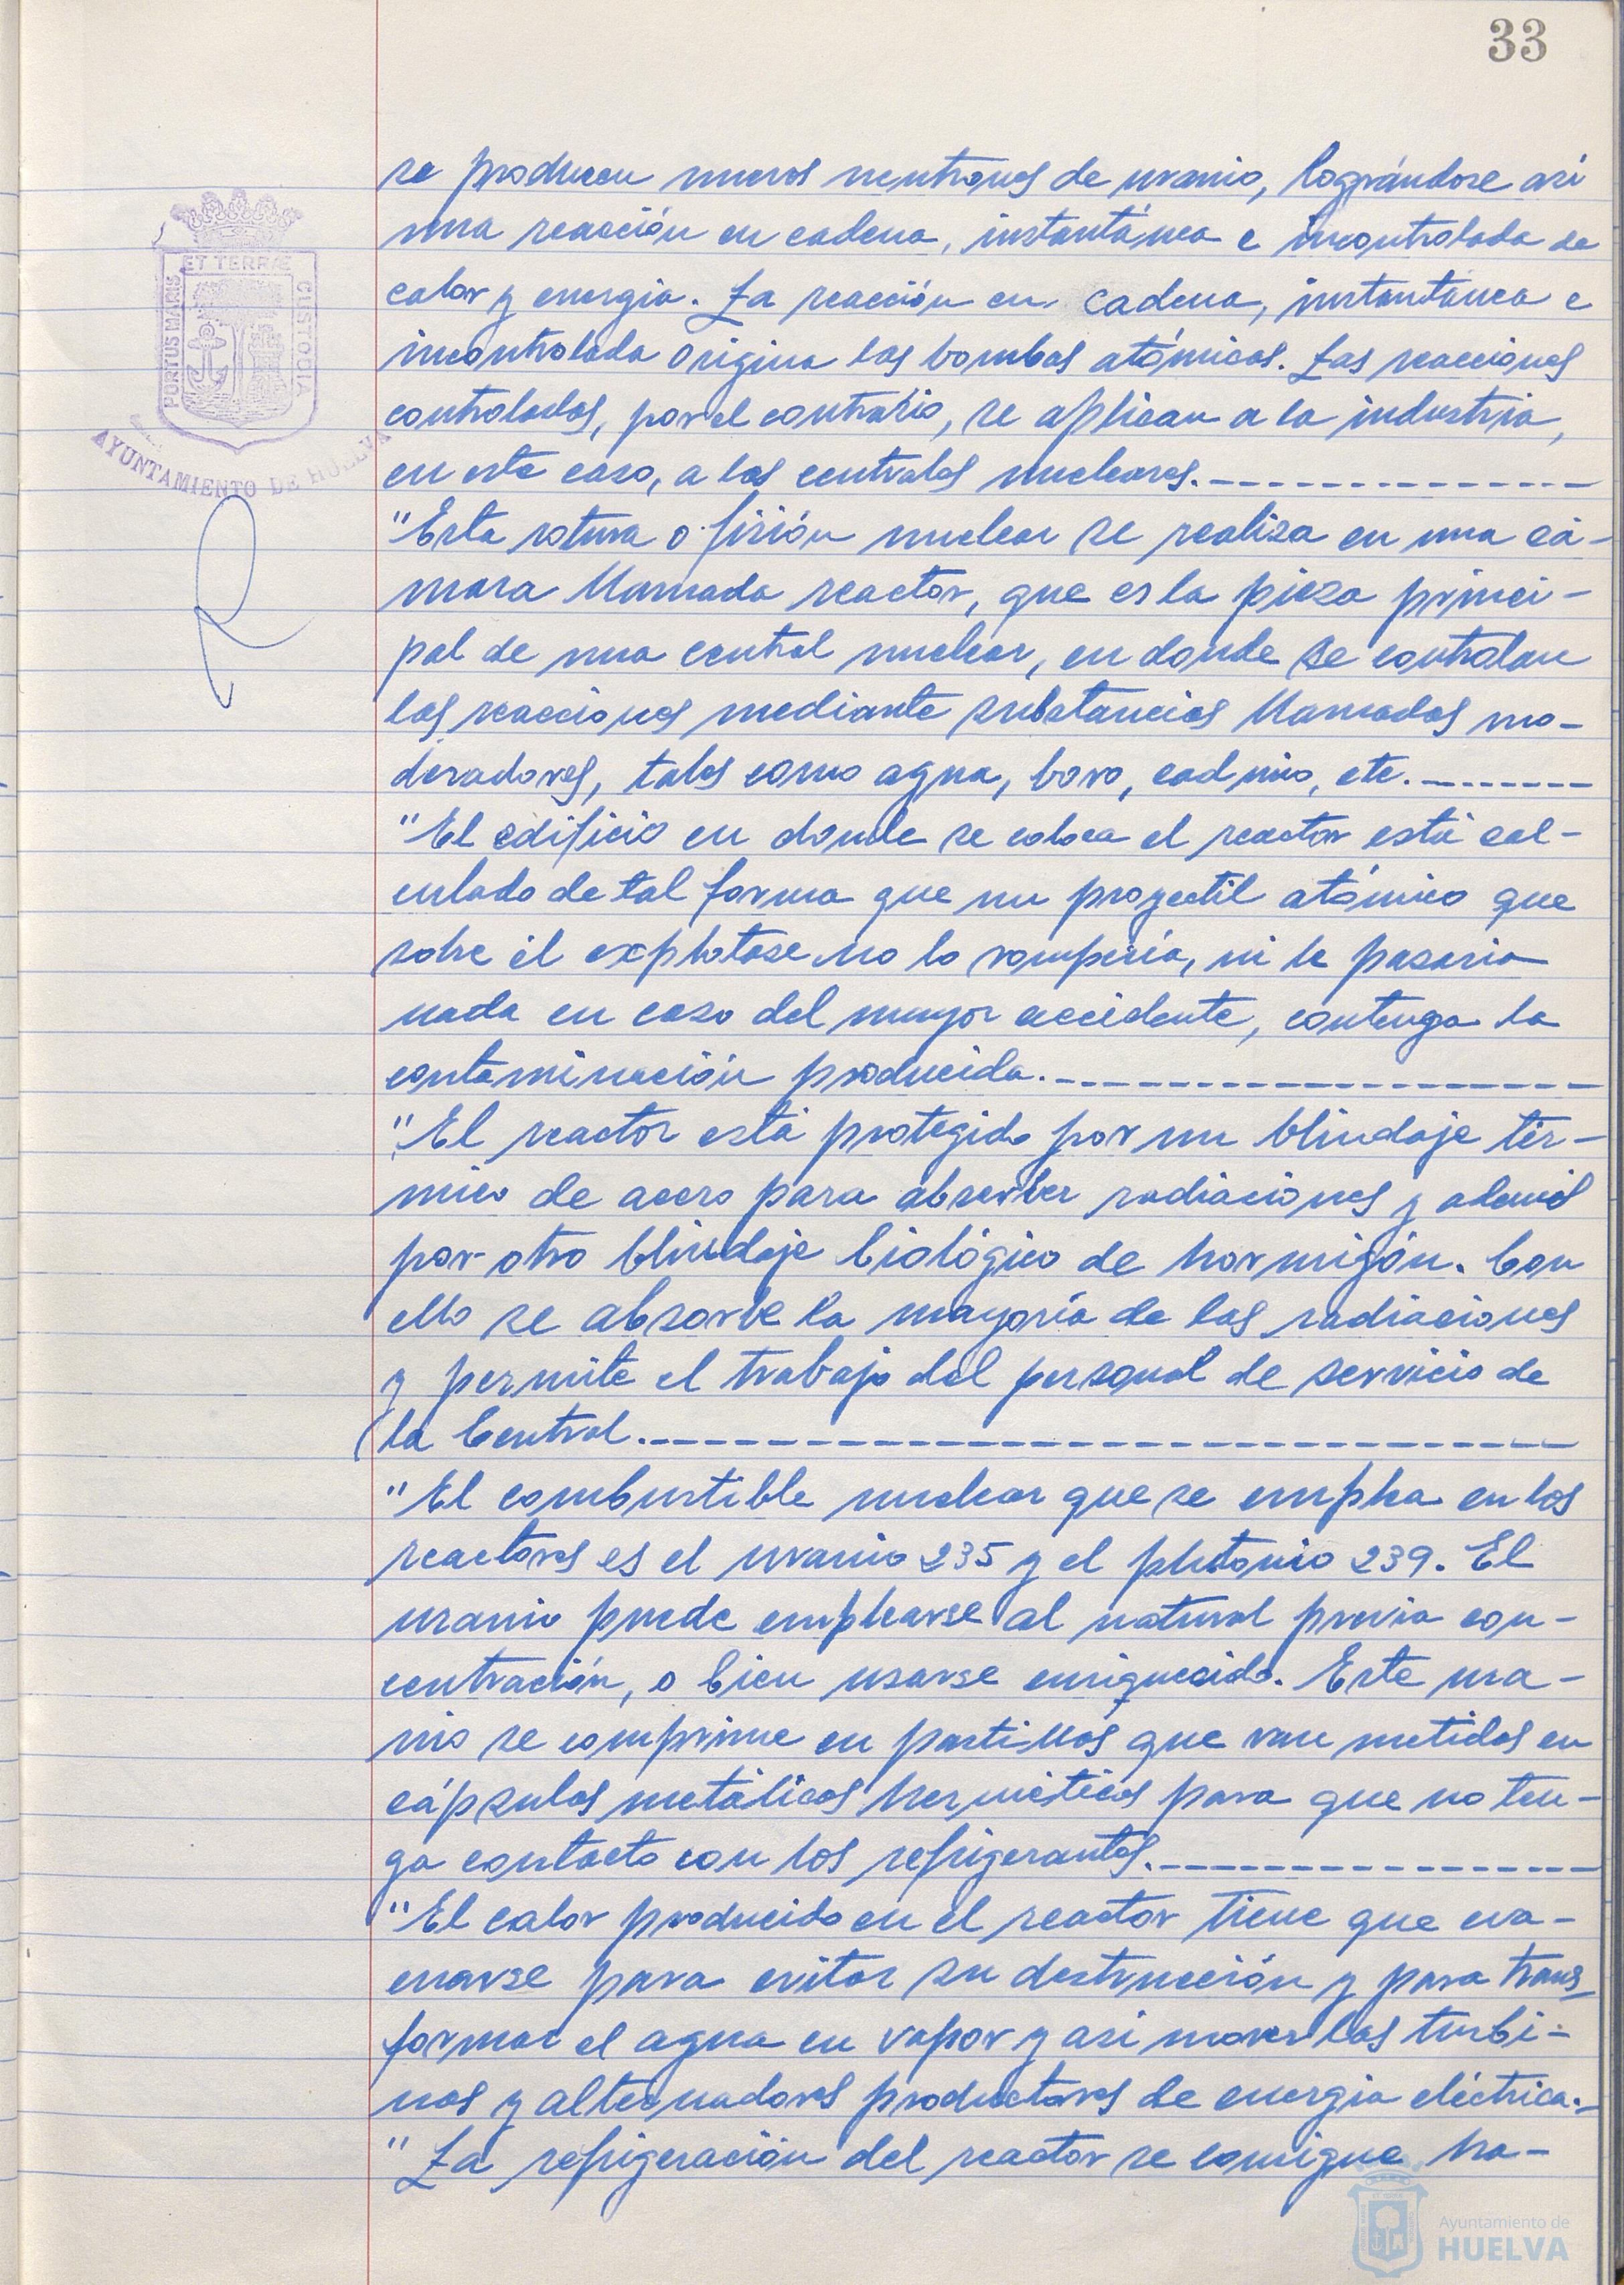 33
se producen nuevos neutrones de uranio, lográndose así
una reacción en cadena, instantánea e incontrolada de
calor y energía. La reacción en cadena, instantánea e
incontrolada origina las bombas atómicas. Las reacciones
controladas, por el contrario, se aplican a la industria,
en este caso, a las centrales nucleares.
"Esta rotura o fisión nuclear se realiza en una cá-
mara llamada reactor, que es la pieza princi-
pal de una central nuclear, en donde se controlan
las reacciones mediante substancias llamadas mo-
deradores, tales como agua, boro, cadmio, etc.
"El edificio en donde se coloca el reactor está cal-
culado de tal forma que un proyectil atómico que
sobre él explotase no lo rompería, ni le pasaría
nada en caso del mayor accidente, contenga la
contaminación producida.
"El reactor está protegido por un blindaje tér-
mico de acero para absorber radiaciones y además
por otro blindaje biológico de hormigón. Con
ello se absorbe la mayoría de las radiaciones
y permite el trabajo del personal de servicio de
la Central.
"El combustible nuclear que se emplea en los
reactores es el uranio 235 y el plutonio 239. El
uranio puede emplearse al natural previa con-
centración, o bien usarse enriquecido. Este ura-
nio se comprime en pastillas que van metidas en
cápsulas metálicas herméticas para que no ten-
ga contacto con los refrigerantes.
"El calor producido en el reactor tiene que eva-
cuarse para evitar su destrucción y para trans-
formar el agua en vapor y así mover las turbi-
nas y alternadores productores de energía eléctrica.
"La refrigeración del reactor se consigue ha-
PORTUS MARIS
ET TERRÆ
CUSTODIA
AYUNTAMIENTO DE HUELVA
Ayuntamiento de
HUELVA